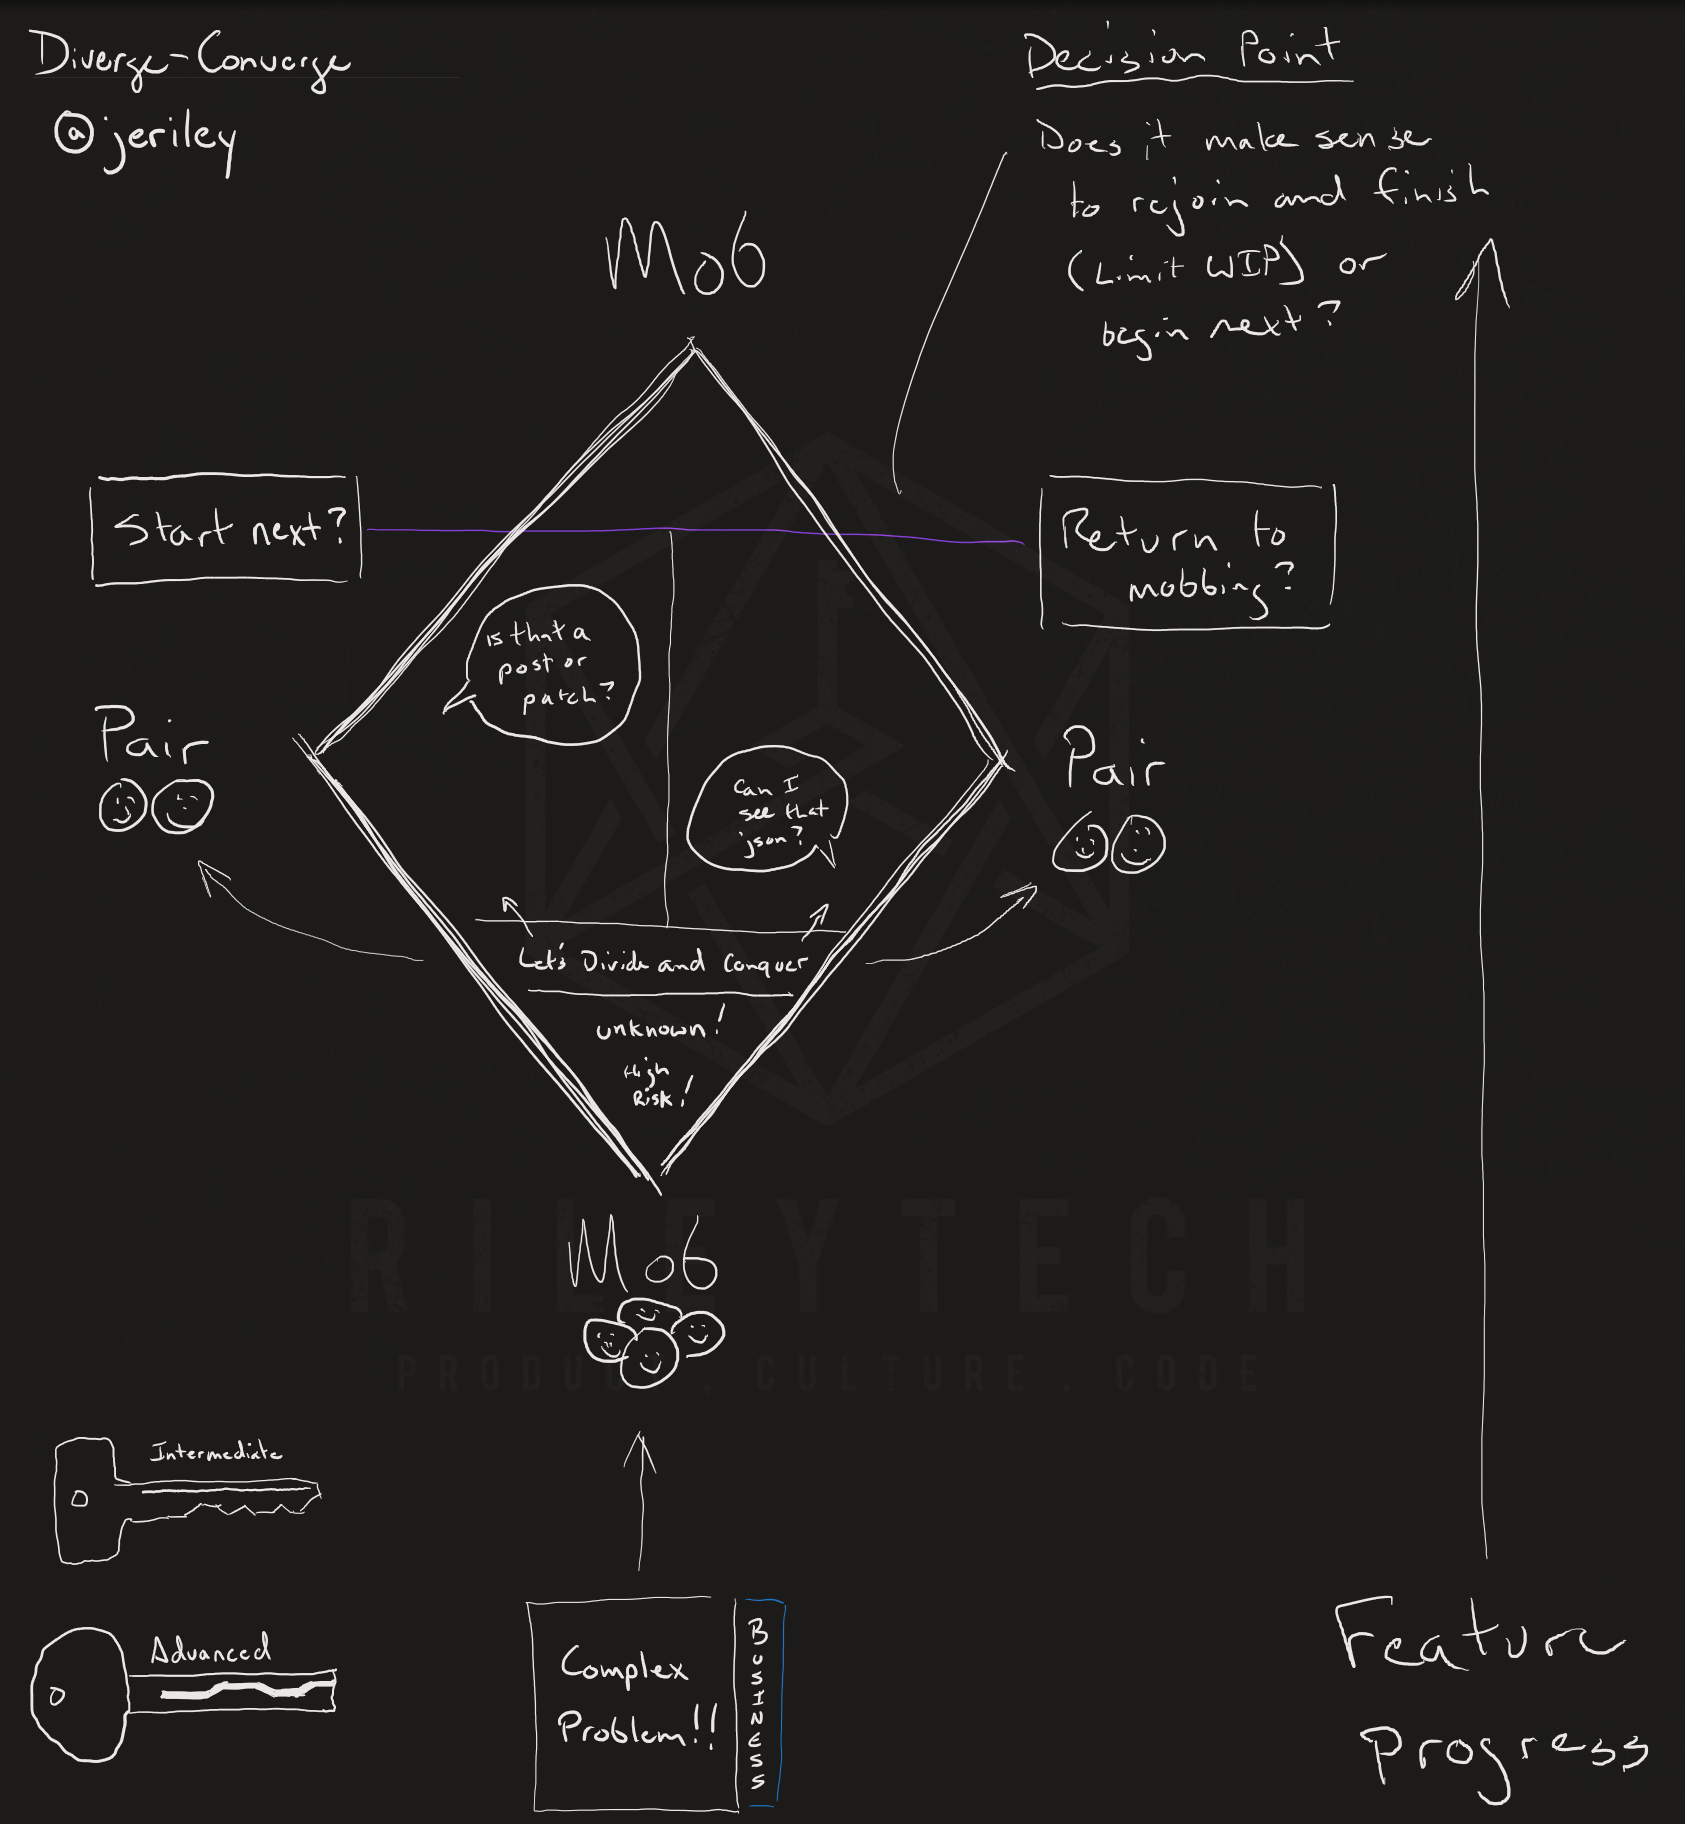 Diverge-Converge
@jeriley
Decision Point
Does it make sense
to rejoin and finish
(Limit WIP) or
begin next?
Mob
Start next?
Return to
mobbing?
is that a
post or
patch?
Pair
Pair
Can I
see that
json?
Let's Divide and Conquer
unknown!
High
Risk!
RILEYTECH
Mob
PRODUCT. CULTURE. CODE
Intermediate
Advanced
Complex
Problem!!
BUSINESS
Feature
Progress